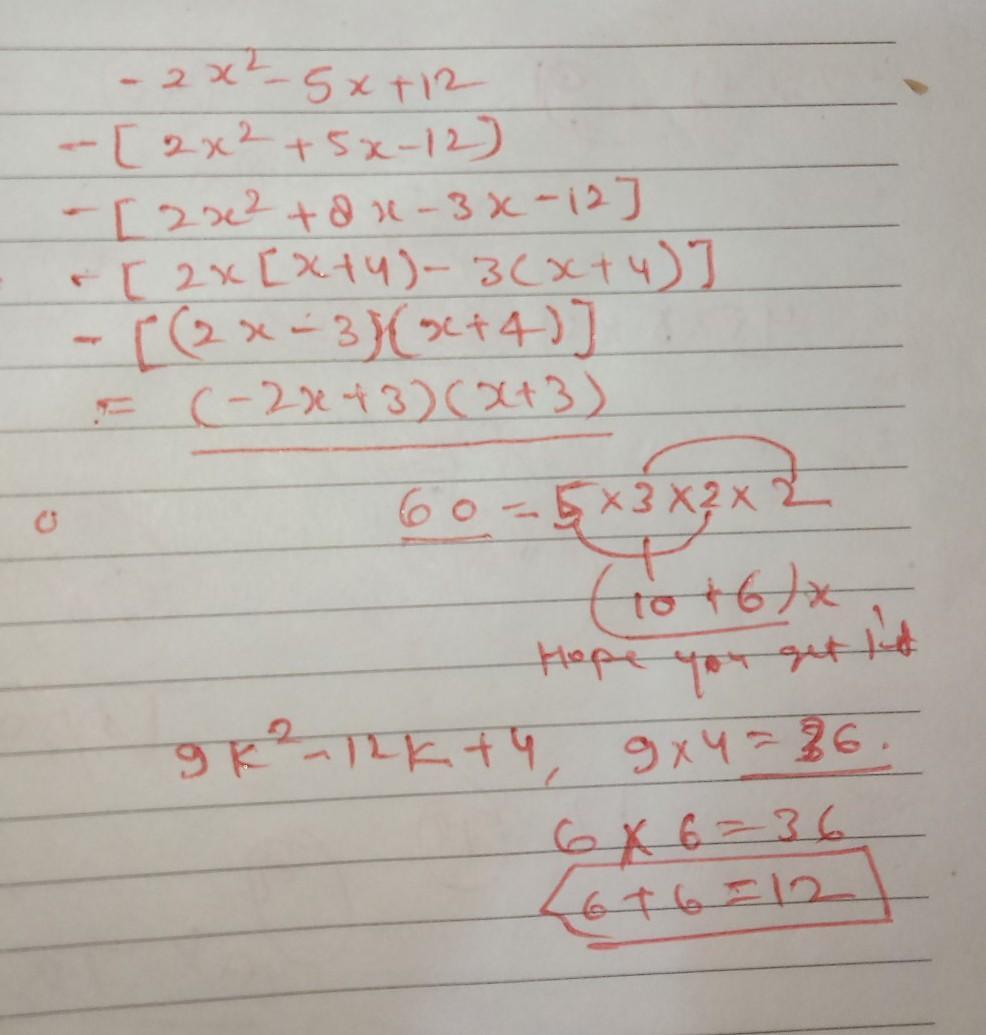 - 2x² - 5x + 12
- [ 2x² + 5x - 12 )
- [ 2x² + 8x - 3x - 12 ]
- [ 2x [ x + 4 ) - 3 ( x + 4 ) ]
- [ ( 2x - 3 ) ( x + 4 ) ]
= ( - 2x + 3 ) ( x + 3 )
60 = 5 × 3 × 2 × 2
( 10 + 6 ) x
Hope you get it
9k² - 12k + 4, 9 × 4 = 36.
6 × 6 = 36
6 + 6 = 12